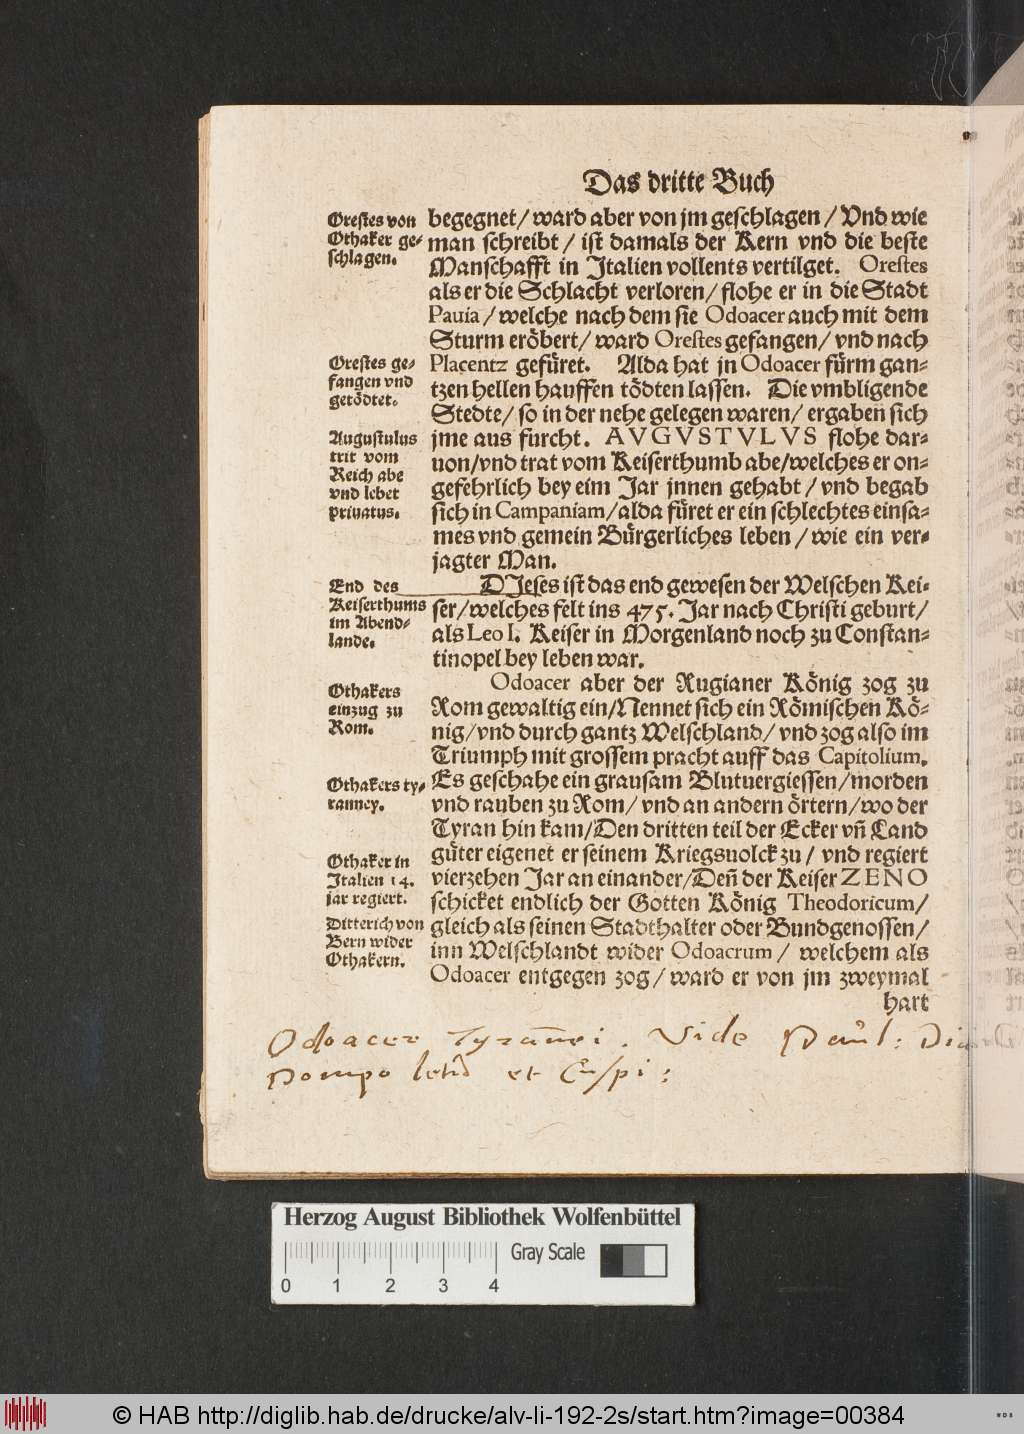 Das dritte Buch
Orestes von
Othaker ge-
schlagen.
begegnet/ ward aber von jm geschlagen / Vnd wie
man schreibt / ist damals der Kern vnd die beste
Manschafft in Italien vollents vertilget. Orestes
als er die Schlacht verloren/ flohe er in die Stadt
Pauia / welche nach dem sie Odoacer auch mit dem
Sturm eröbert/ ward Orestes gefangen/ vnd nach
Orestes ge-
fangen vnd
getödtet.
Placentz gefüret. Alda hat jn Odoacer fürm gan-
tzen hellen hauffen tödten lassen. Die vmbligende
Stedte/ so in der nehe gelegen waren/ ergaben sich
Augustulus
trit vom
Reich abe
vnd lebet
priuatus.
jme aus furcht. AVGVSTVLVS flohe dar-
uon/vnd trat vom Keiserthumb abe/welches er on-
gefehrlich bey eim Jar jnnen gehabt / vnd begab
sich in Campaniam/alda füret er ein schlechtes einsa-
mes vnd gemein Bürgerliches leben / wie ein ver-
jagter Man.
End des
Keiserthums
im Abend-
lande.
DJeses ist das end gewesen der Welschen Kei-
ser/welches felt ins 475. Jar nach Christi geburt/
als Leo I. Keiser in Morgenland noch zu Constan-
tinopel bey leben war.
Othakers
einzug zu
Rom.
Odoacer aber der Rugianer König zog zu
Rom gewaltig ein/Nennet sich ein Römischen Kö-
nig/vnd durch gantz Welschland/ vnd zog also im
Triumph mit grossem pracht auff das Capitolium.
Othakers ty-
ranney.
Es geschahe ein grausam Blutuergiessen/morden
vnd rauben zu Rom/ vnd an andern örtern/wo der
Tyran hin kam/Den dritten teil der Ecker vñ Land
Othaker in
Italien 14.
jar regiert.
güter eigenet er seinem Kriegsuolck zu/ vnd regiert
vierzehen Jar an einander/Deñ der Keiser ZENO
schicket endlich der Gotten König Theodoricum/
Ditterich von
Bern wider
Othakern.
gleich als seinen Stadthalter oder Bundgenossen/
inn Welschlandt wider Odoacrum / welchem als
Odoacer entgegen zog/ ward er von jm zweymal
hart
Odoacer Vide Paul:
Pompo et
Herzog August Bibliothek Wolfenbüttel
Gray Scale
0 1 2 3 4
© HAB http://diglib.hab.de/drucke/alv-li-192-2s/start.htm?image=00384